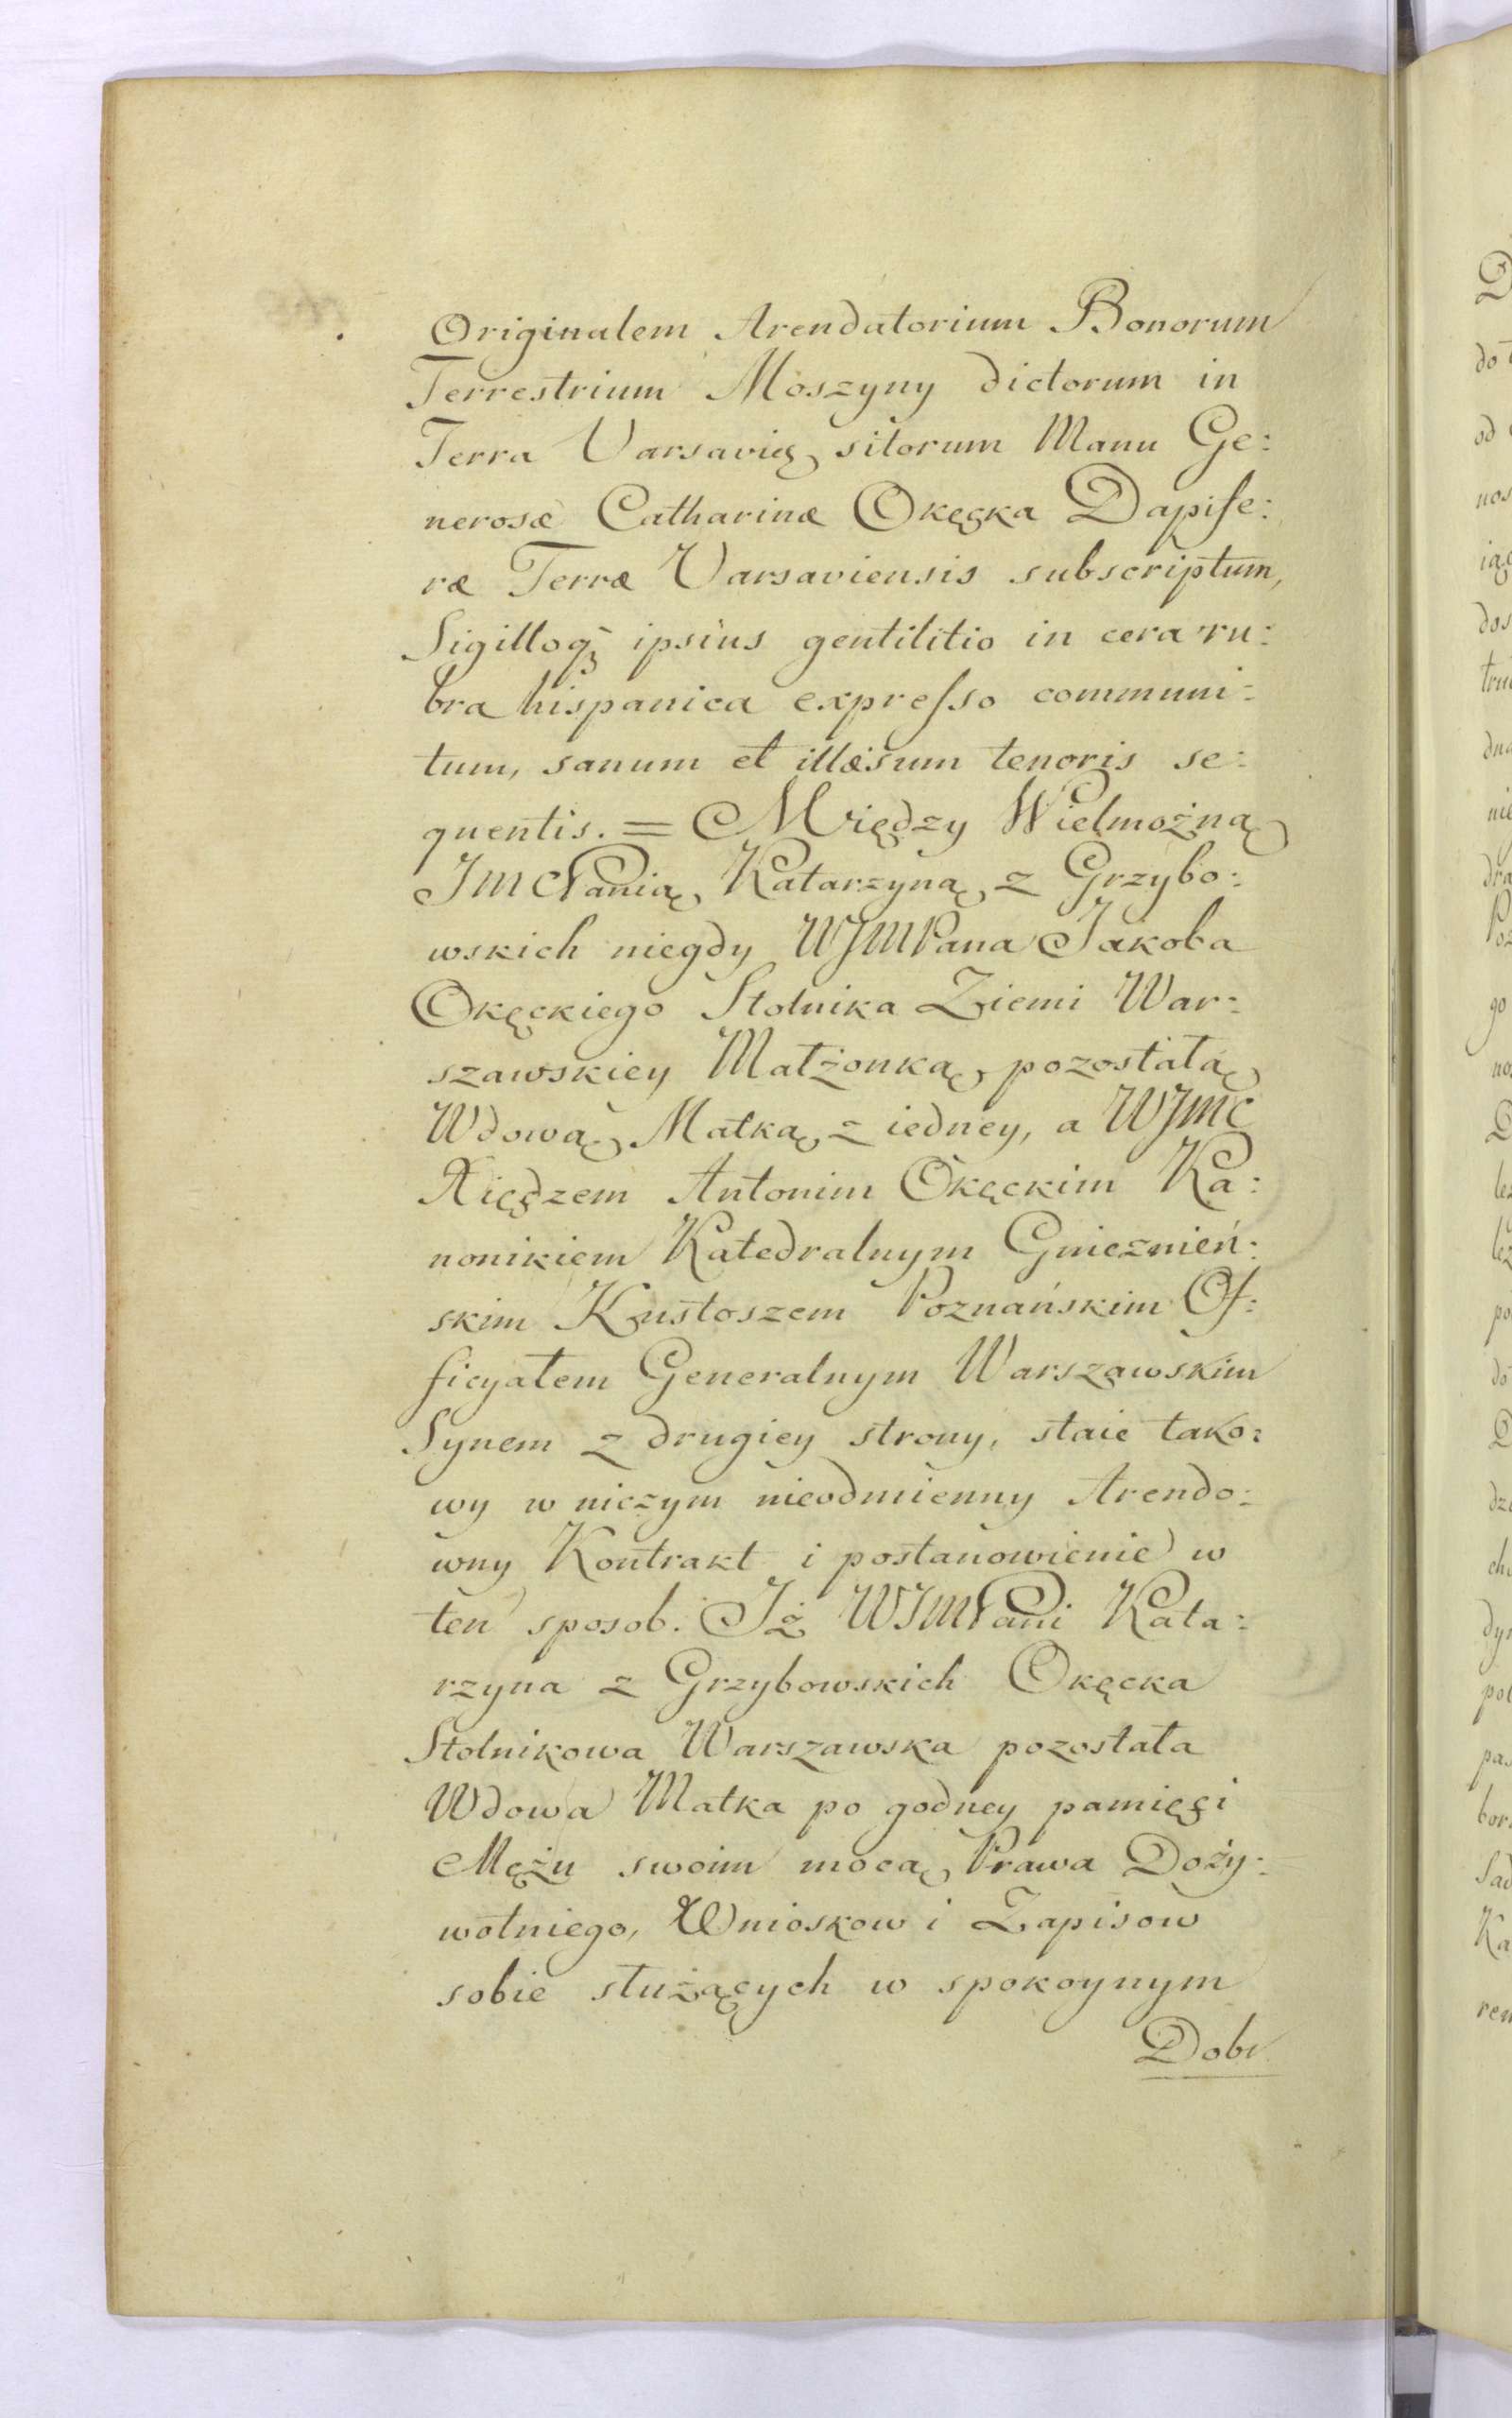 Originalem Arendatorium Bonorum
Terrestrium Moszyny dictorum in
Terra Varsavię sitorum Manu Ge:
nerosæ Catharinæ Okęcka Dapife:
ræ Terræ Varsaviensis subscriptum,
Sigilloq; ipsius gentilitio in cera ru:
bra hispanica expreſso communi:
tum, sanum et illæsum tenoris se:
quentis. = Między Wielmożną
JmcPanią Katarzyną z Grzybo:
wskich niegdy WJMPana Jakoba
Okęckiego Stolnika Ziemi War:
szawskiey Małżonką pozostałą
Wdową Matką z iedney, a WJmc
Xiędzem Antonim Okęckim Ka:
nonikiem Katedralnym Gnieznień:
skim Kustoszem Poznańskim Of:
ficyałem Generalnym Warszawskim
Synem z drugiey strony, staie tako:
wy w niczym nieodmienny Arendo:
wny Kontrakt i postanowienie w
ten sposob. Iż WJMPani Kata:
rzyna z Grzybowskich Okęcka
Stolnikowa Warszawska pozostała
Wdowa Matka po godney pamięci
Mężu swoim mocą Prawa Doży:
wotniego, Wnioskow i Zapisow
sobie służących w spokoynym
Dobr